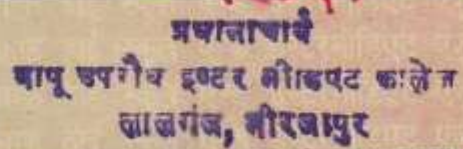 प्रधानाचार्य
बापू उपरौध इण्टर मीडिएट कालेज
लालगंज, मीरजापुर